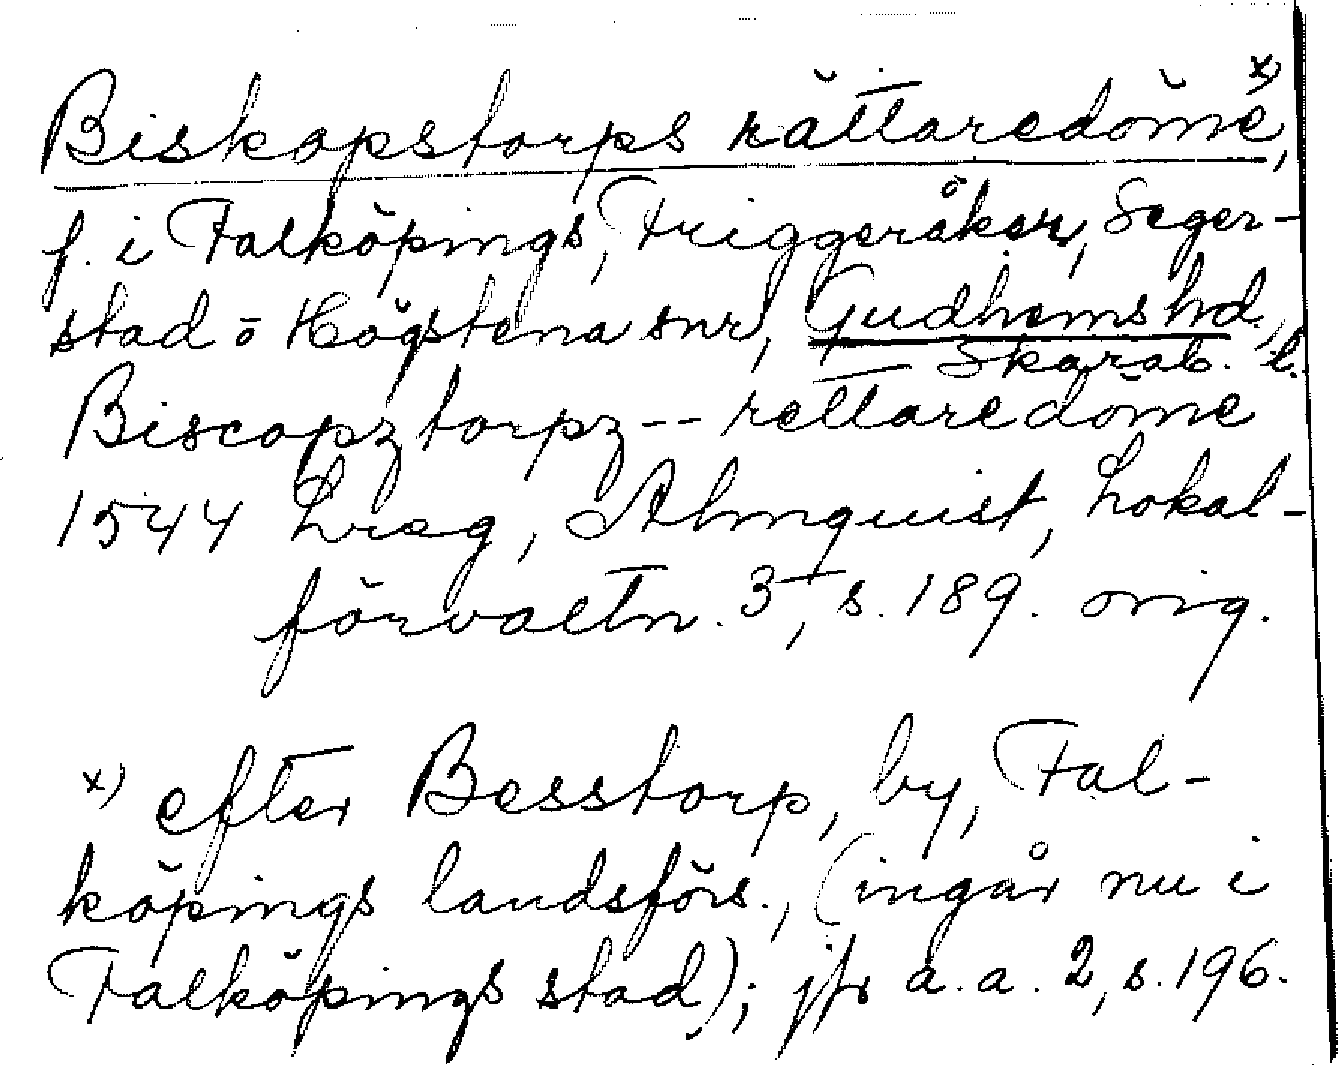 Biskopstorps rättaredöme x),
f. i Falköpings, Friggeråker, Seger-
stad o Högstena snr, Gudhems hd.,
Skarab. l.
Biscopztorpz -- rettaredöme
1544 Lrsg, Almquist, Lokal-
förvaltn. 3, s. 189. orig.
x) efter Besstorp, by, Fal-
köpings landsförs., (ingår nu i
Falköpings stad); jfr a.a. 2, s. 196.